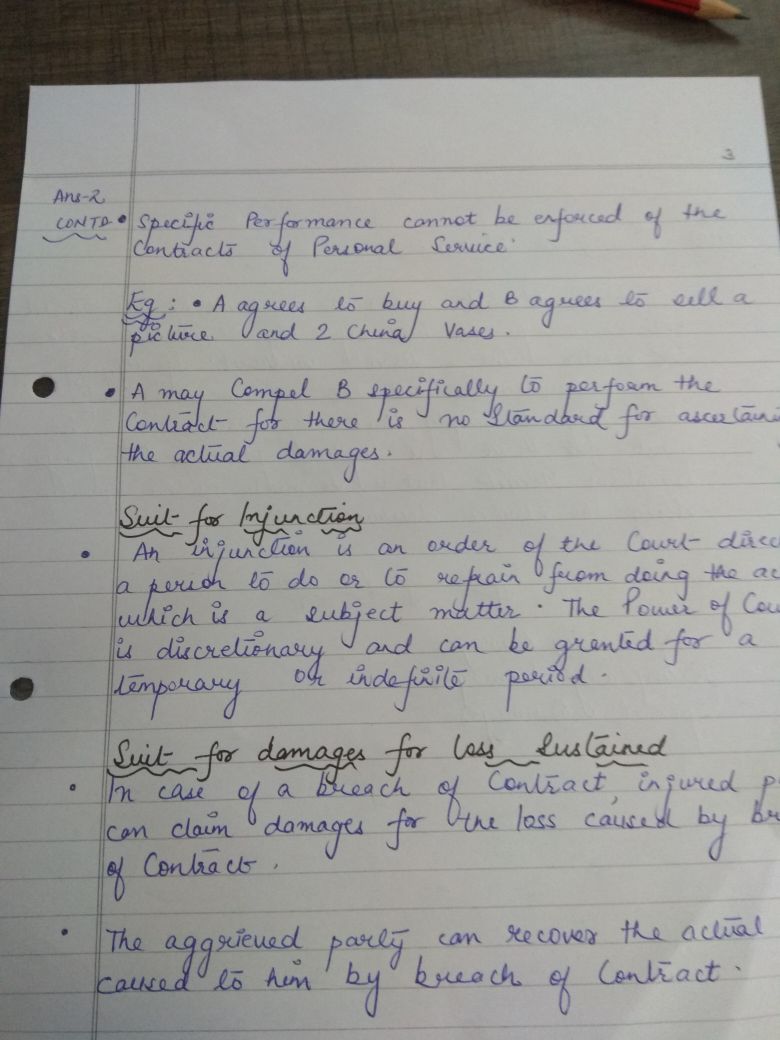 3
Ans-2
CONTD • Specific Performance cannot be enforced of the
Contracts of Personal Service.
Eg : • A agrees to buy and B agrees to sell a
picture and 2 China Vases.
• A may Compel B specifically to perform the
Contract for there is no Standard for
the actual damages.
Suit for Injunction
• An injunction is an order of the Court
a person to do or to refrain from doing the
which is a subject matter. The Power of
is discretionary and can be granted for a
temporary or indefinite period.
Suit for damages for loss Sustained
• In case of a breach of Contract, injured
can claim damages for the loss caused by
of Contract.
• The aggrieved party can recover the actual
caused to him by breach of Contract.